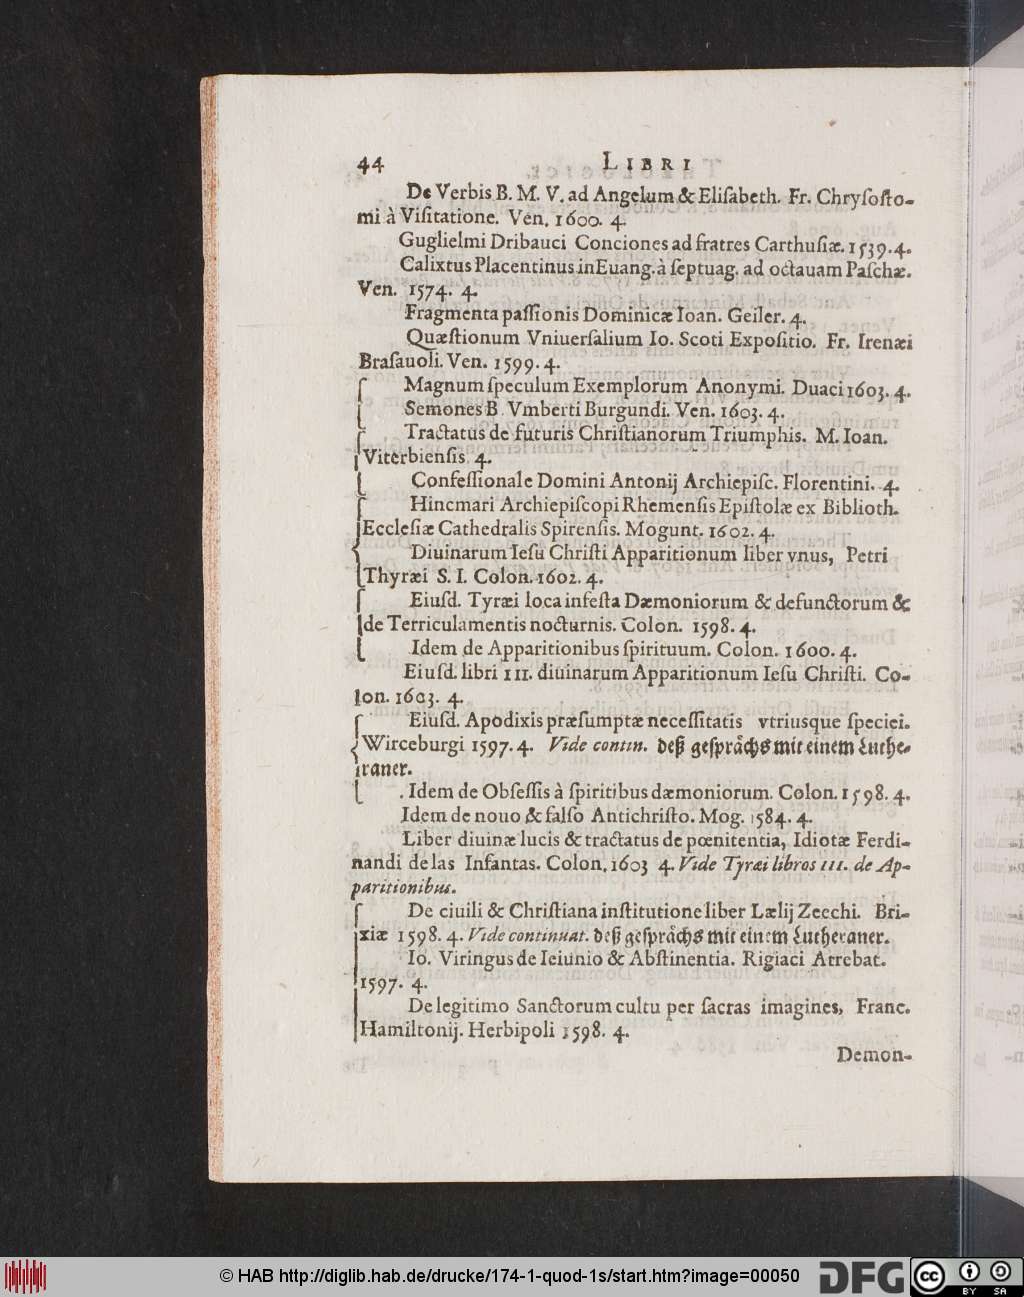 44 LIBRI
De Verbis B. M. V. ad Angelum & Eliſabeth. Fr. Chryſoſto-
mi à Viſitatione. Ven. 1600. 4.
Guglielmi Dribauci Conciones ad fratres Carthuſiæ. 1539. 4.
Calixtus Placentinus in Euang. à ſeptuag. ad octauam Paſchæ.
Ven. 1574. 4.
Fragmenta paſſionis Dominicæ Ioan. Geiler. 4.
Quæſtionum Vniuerſalium Io. Scoti Expoſitio. Fr. Irenæi
Braſauoli. Ven. 1599. 4.
Magnum ſpeculum Exemplorum Anonymi. Duaci 1603. 4.
Semones B Vmberti Burgundi. Ven. 1603. 4.
Tractatus de futuris Chriſtianorum Triumphis. M. Ioan.
Viterbienſis. 4.
Confeſſionale Domini Antonij Archiepiſc. Florentini. 4.
Hincmari Archiepiſcopi Rhemenſis Epiſtolæ ex Biblioth.
Eccleſiæ Cathedralis Spirenſis. Mogunt. 1602. 4.
Diuinarum Ieſu Chriſti Apparitionum liber vnus, Petri
Thyræi S. I. Colon. 1602. 4.
Eiuſd. Tyræi loca infeſta Dæmoniorum & defunctorum &
de Terriculamentis nocturnis. Colon. 1598. 4.
Idem de Apparitionibus ſpirituum. Colon. 1600. 4.
Eiuſd. libri III. diuinarum Apparitionum Ieſu Chriſti. Co-
lon. 1603. 4.
Eiuſd. Apodixis præſumptæ neceſſitatis vtriusque ſpeciei.
Wirceburgi 1597. 4. Vide contin. deß geſprächs mit einem Luthe-
raner.
Idem de Obſeſſis à ſpiritibus dæmoniorum. Colon. 1598. 4.
Idem de nouo & falſo Antichriſto. Mog. 1584. 4.
Liber diuinæ lucis & tractatus de pœnitentia, Idiotæ Ferdi-
nandi de las Infantas. Colon. 1603 4. Vide Tyræi libros III. de Ap-
paritionibus.
De ciuili & Chriſtiana inſtitutione liber Lælij Zecchi. Bri-
xiæ 1598. 4. Vide continuat. deß geſprächs mit einem Lutheraner.
Io. Viringus de Ieiunio & Abſtinentia. Rigiaci Atrebat.
1597. 4.
De legitimo Sanctorum cultu per ſacras imagines, Franc.
Hamiltonij. Herbipoli 1598. 4.
Demon-
© HAB http://diglib.hab.de/drucke/174-1-quod-1s/start.htm?image=00050 DFG CC BY SA